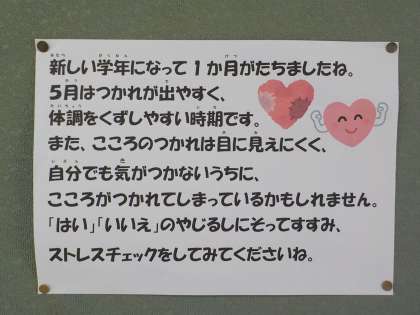 新しい学年になって1か月がたちましたね。
5月はつかれが出やすく、
体調をくずしやすい時期です。
また、こころのつかれは目に見えにくく、
自分でも気がつかないうちに、
こころがつかれてしまっているかもしれません。
「はい」「いいえ」のやじるしにそってすすみ、
ストレスチェックをしてみてくださいね。